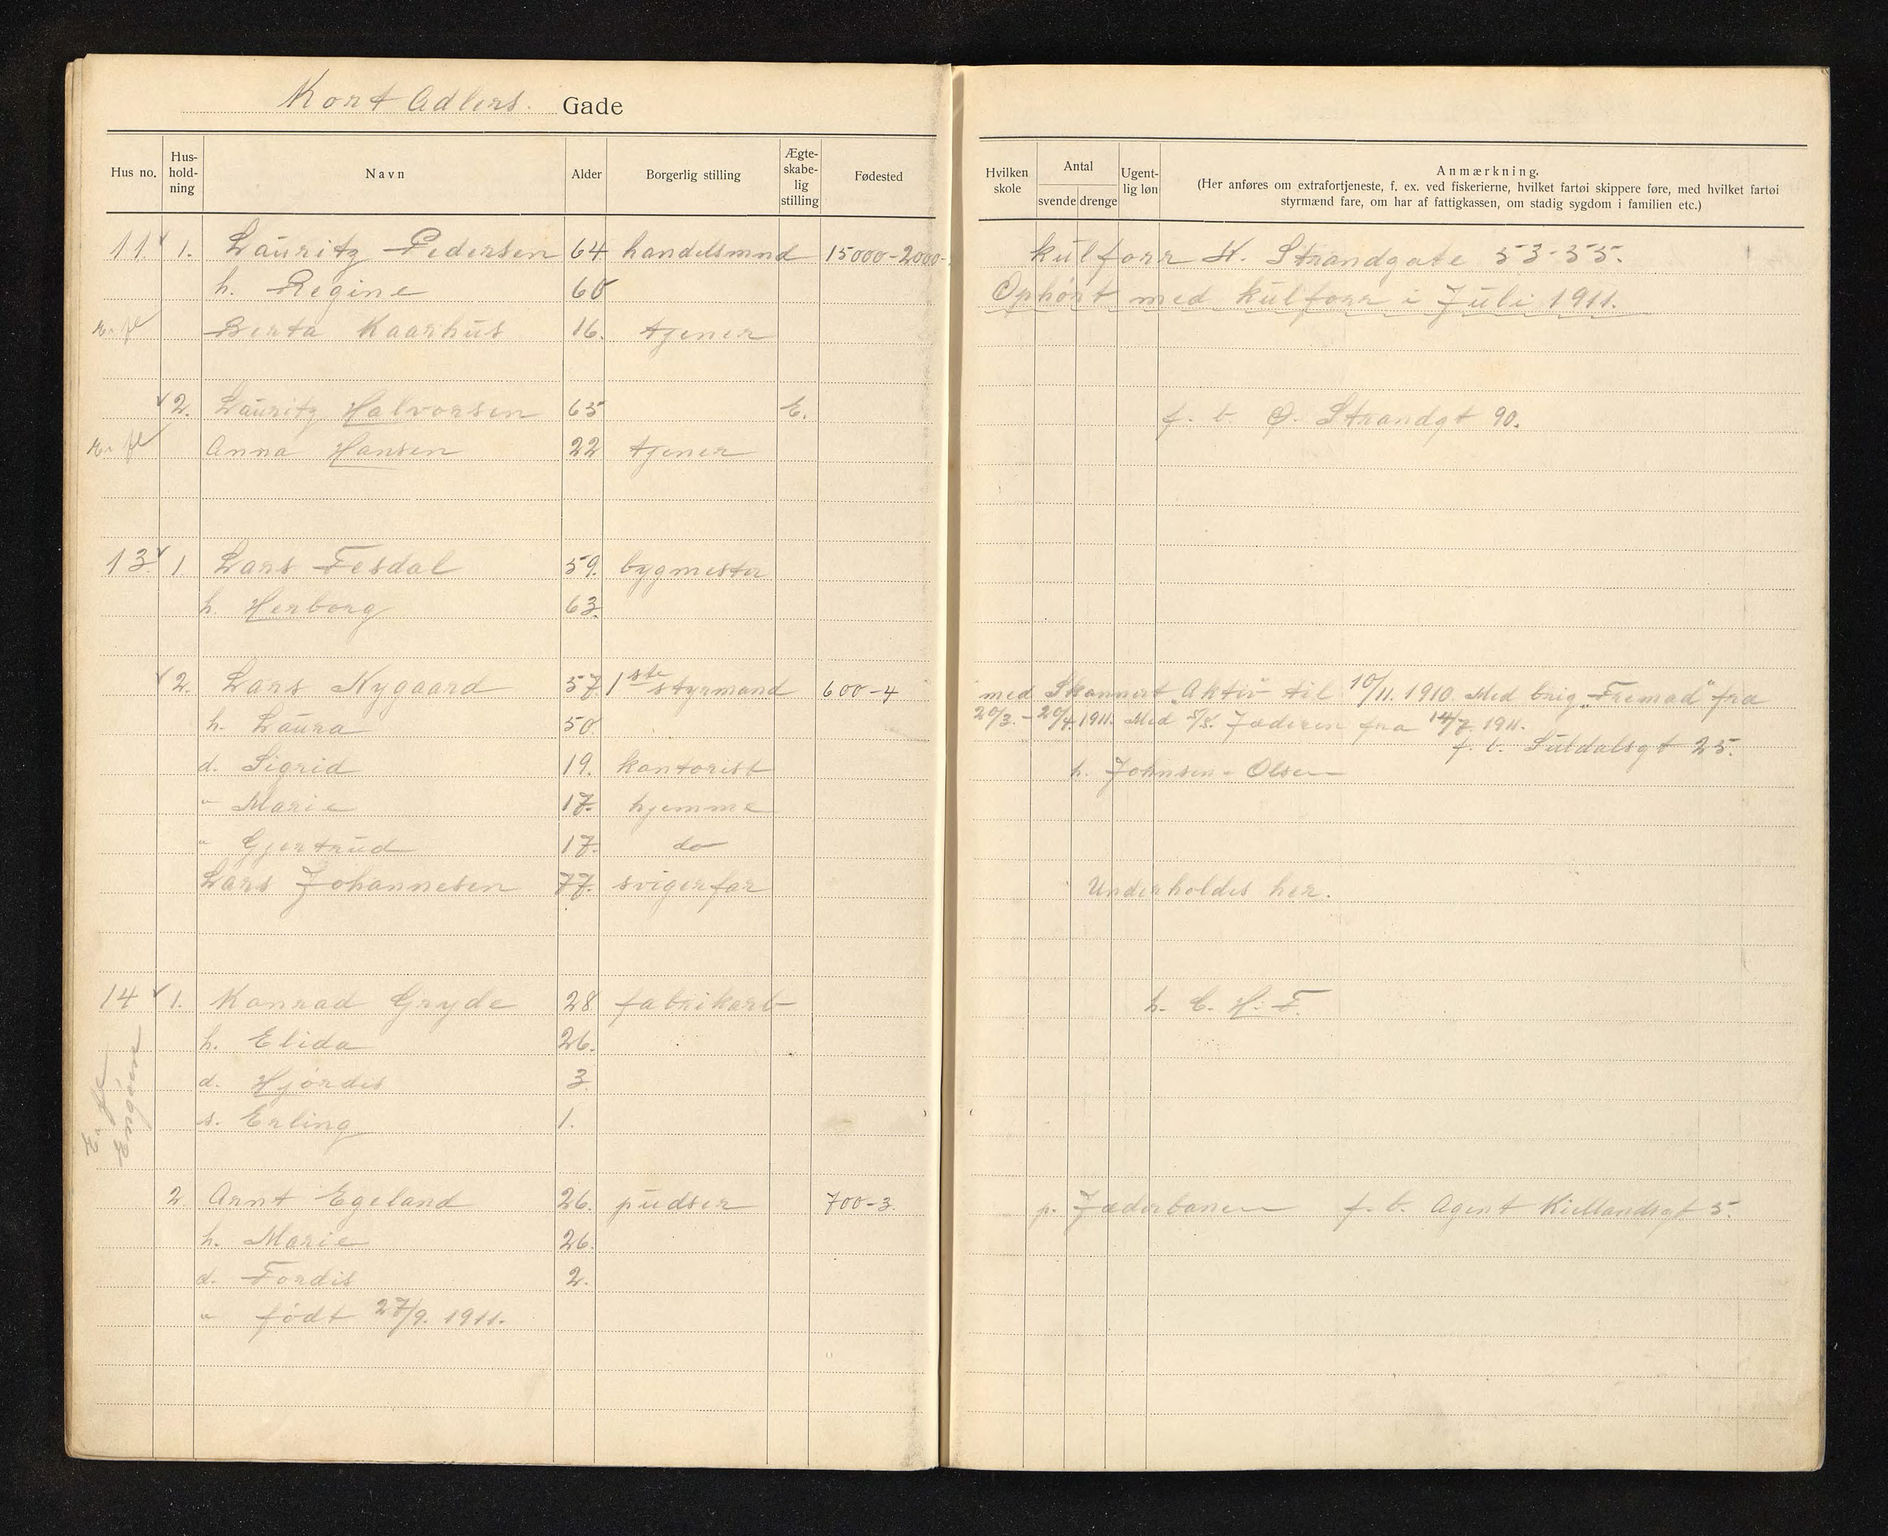 Kort Adlers. Gade
Hus no. Hus-hold-ning Navn Alder Borgerlig stilling Ægte-skabe-lig stilling Fødested
11. 1. Lauritz Pedersen 64 handelsmnd 15000-2000-
h. Regine 60
Berta Kaarhus 16. tjener
2. Lauritz Halvorsen 65 E.
Anna Hansen 22 tjener
13. 1 Lars Fesdal 59. bygmester
h. Herborg 63.
2. Lars Nygaard 57 1ste styrmand 600-4
h. Laura 50
d. Sigrid 19. kontorist
" Marie 17. hjemme
" Gjertrud 17. do
Lars Johannesen 77. svigerfar
14 1. Konrad Gryde 28 fabrikarb
h. Elida 26.
d. Hjørdis 3
s. Erling 1.
Engøien
2. Arnt Egeland 26. pudser 700-3.
h. Marie 26.
d. Tordis 2.
" født 27/9. 1911.
Hvilken skole Antal svende drenge Ugent-lig løn Anmærkning.
(Her anføres om extrafortjeneste, f. ex. ved fiskerierne, hvilket fartøi skippere føre, med hvilket fartøi
styrmænd fare, om har af fattigkassen, om stadig sygdom i familien etc.)
kulforr N. Strandgate 53-55.
Ophørt med kulforr i Juli 1911.
f. b. Ø. Strandgt 90.
med Skonnert "Aktiv" til 10/11. 1910. Med brig "Fremad" fra
20/3. - 20/4. 1911. Med S/S. Jæderen fra 14/7. 1911.
f. b. Suldalsgt 25.
h. Johnsen & Olsen
Underholdes her.
h. C. H. F.
p. Jæderbanen f. b. Agent Kiellandsgt 5.